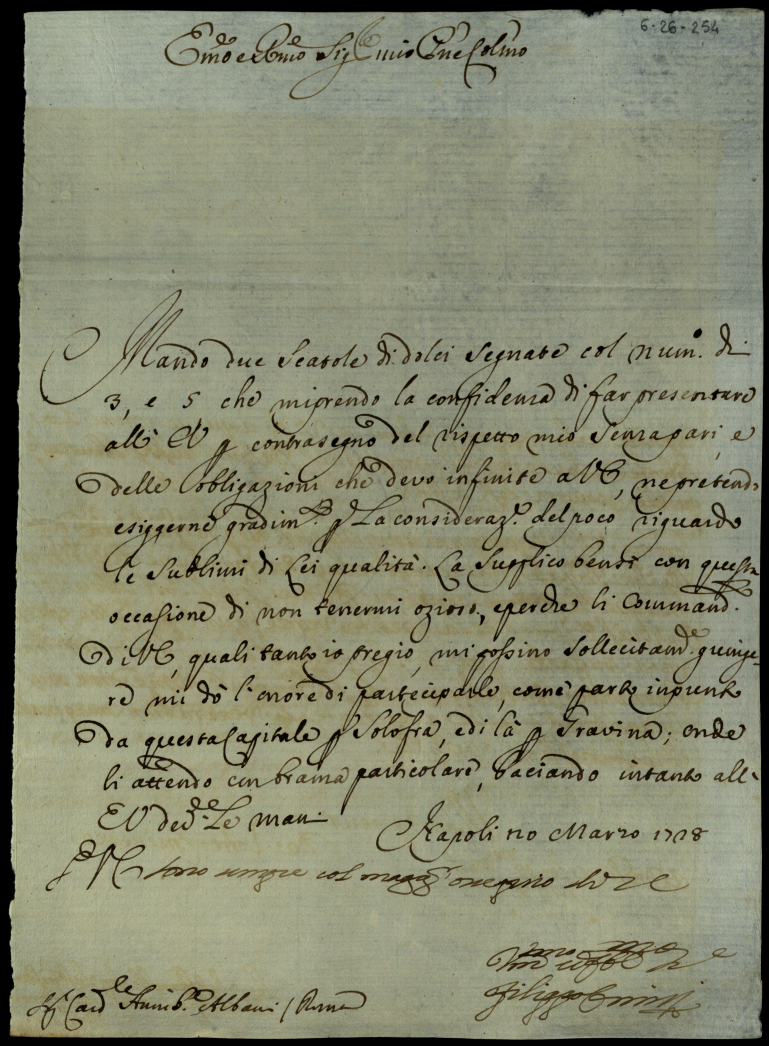 6-26-254
Em̃o e Rm̃o Sig.r mio P̃ne Col̃mo
Mando due Scatole di dolci segnate col num.o di
3, e 5 che mi prendo la confidenza di far presentare
all' EV p contrasegno del rispetto mio senza pari, e
delle obbligazioni che devo infinite a VE, ne pretendo
esiggerne gradim.to p La consideraz.e del poco riguardo
le sublimi di Lei qualità. La supplico bensì con questa
occasione di non tenermi ozioso, e perche li Command.
di VE, quali tanto io pregio, mi possino sollecitam.e giunge-
re mi dò l'onore di participarle, come parto in punto
da questa Capitale p Solofra, e di là p Gravina; onde
li attendo con brama particolare, baciando intanto all'
EV ded.e Le mani.
Napoli 20 Marzo 1728
VE sono sempre col magg.r ossequio
Filippo
Sig. Card.le Annib.e Albani / Roma